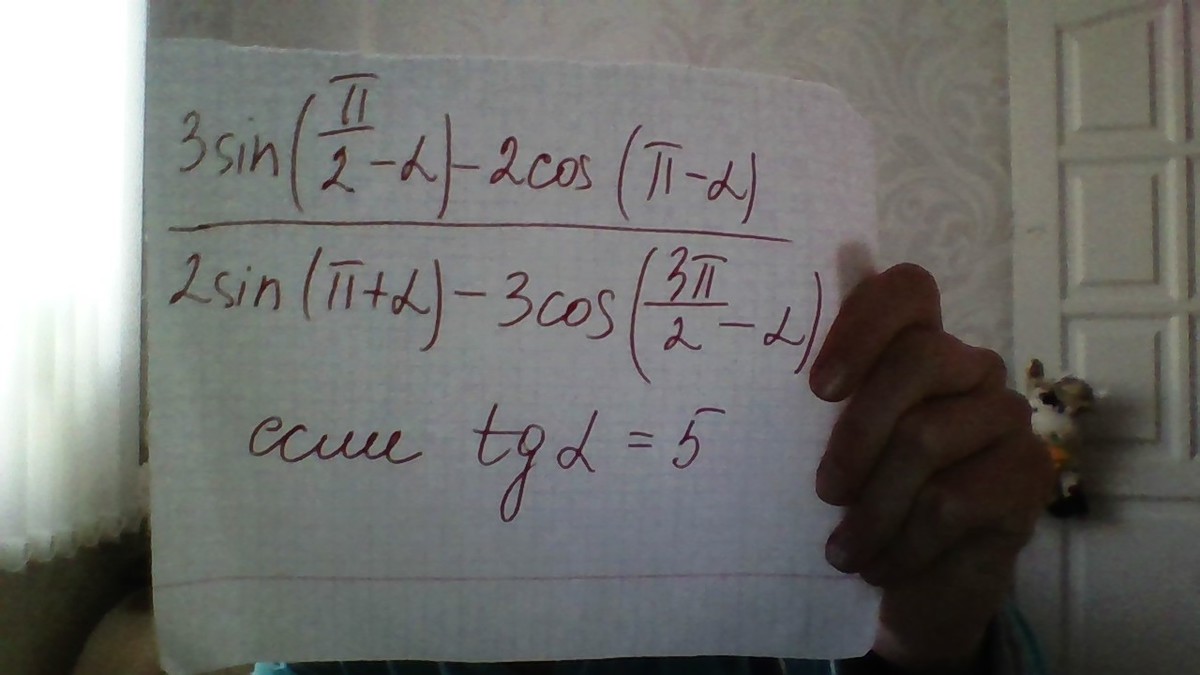 3sin(π/2 - α) - 2cos(π - α)
2sin(π + α) - 3cos(3π/2 - α)
если tg α = 5